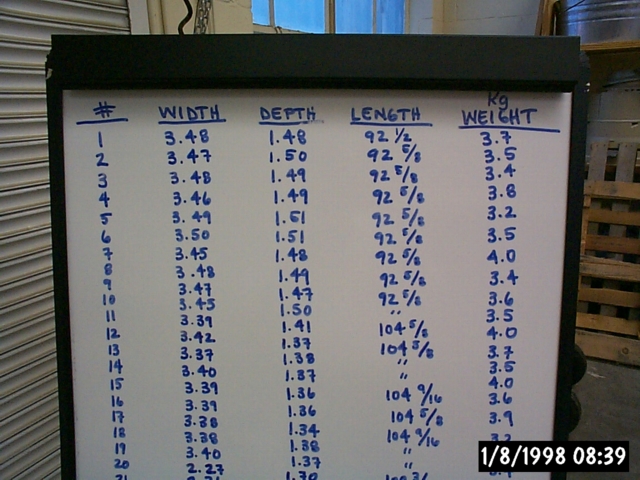 Kg
# WIDTH DEPTH LENGTH WEIGHT
1 3.48 1.48 92 1/2 3.7
2 3.47 1.50 92 5/8 3.5
3 3.48 1.49 92 5/8 3.4
4 3.46 1.49 92 5/8 3.8
5 3.49 1.51 92 5/8 3.2
6 3.50 1.51 92 5/8 3.5
7 3.45 1.48 92 5/8 4.0
8 3.48 1.49 92 5/8 3.4
9 3.47 1.47 92 5/8 3.6
10 3.45 1.50 " 3.5
11 3.39 1.41 104 5/8 4.0
12 3.42 1.37 104 5/8 3.7
13 3.37 1.38 " 3.5
14 3.40 1.37 " 4.0
15 3.39 1.36 104 9/16 3.6
16 3.39 1.36 104 5/8 3.9
17 3.38 1.34 104 9/16 3.2
18 3.38 1.38 "
19 3.40 1.37 "
20 2.27 1.70
21
1/8/1998 08:39